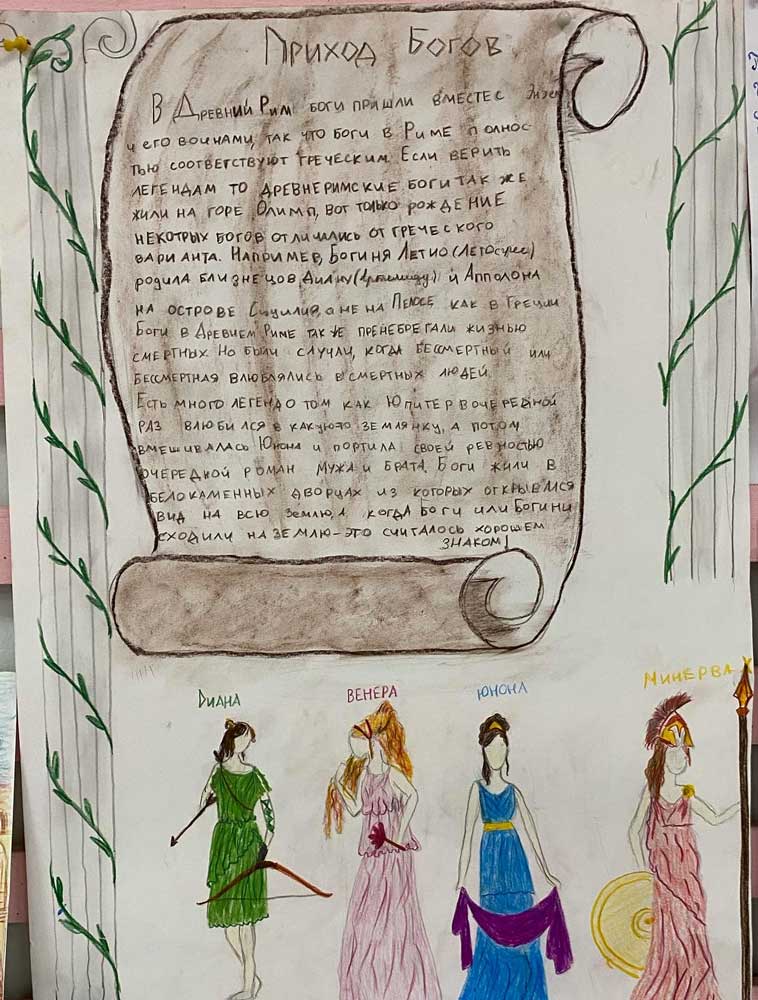 Приход Богов
В Древний Рим боги пришли вместе с Энеем
и его воинами, так что боги в Риме полнос-
тью соответствуют греческим. Если верить
легендам то древнеримские боги так же
жили на горе Олимп, вот только рождение
некотрых богов отличились от греческого
варианта. Например, Богиня Летио
родила близнецов Диану (Артемиду) и Апполона
на острове Сицилия, а не на Пелосе как в Греции
Боги в Древнем Риме так же пренебрегали жизнью
смертных. Но были случли, когда бессмертный или
бессмертная влюблялись в смертных людей.
Есть много легенд о том как Юпитер в очередной
раз влюбился в какуюто землянку, а потом
вмешивалась Юнона и портила своей ревностью
очередной роман мужа и брата. Боги жили в
белокаменных дворцах из которых открывался
вид на всю землю, а когда боги или Богини
сходили на землю – это считалось хорошем
знаком!
Диана
Венера
Юнона
Минерва